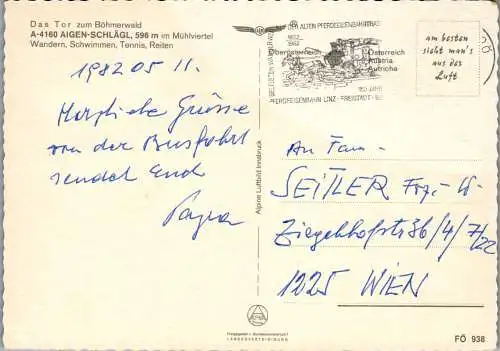 Das Tor zum Böhmerwald
A-4160 AIGEN-SCHLÄGL, 596 m im Mühlviertel
Wandern, Schwimmen, Tennis, Reiten
1982 05 11.
Herzliche Grüsse
von der Busfahrt
sendet Euch
Papa
Alpine Luftbild Innsbruck
DER ALTEN PFERDEEISENBAHNTRASSE
1832
1982
Oberösterreich
Österreich
Austria
Autriche
150 JAHRE
PFERDEEISENBAHN LINZ - FREISTADT
am besten
sieht man's
aus der
Luft
An Fam.
SEITLER Frz.
Ziegelhofstr 36/4/7/22
1225 WIEN
LANDESVERTEIDIGUNG
FÖ 938